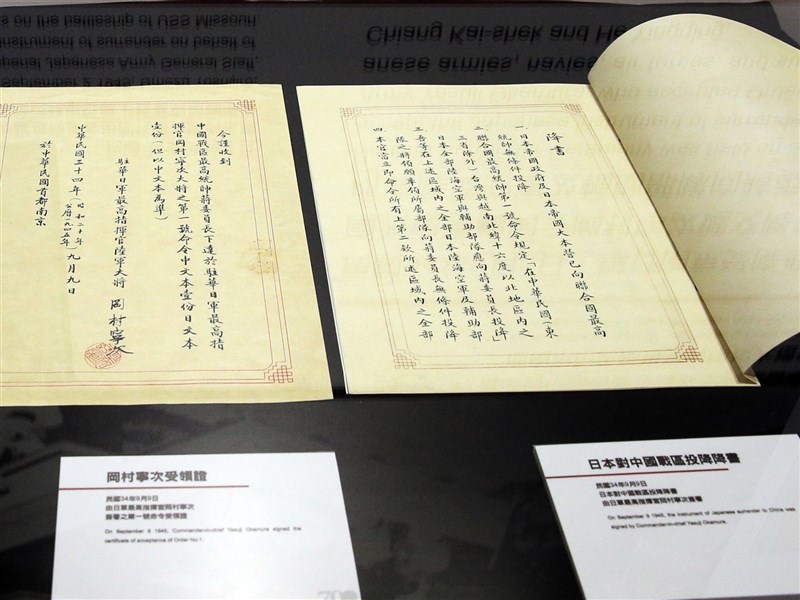 降書
一、日本帝國政府及日本帝國大本營已向聯合國最高
統帥無條件投降
二、聯合國最高統帥第一號命令規定「在中華民國(東
三省除外)台灣與越南北緯十六度以北地區內之
日本全部陸海空軍與輔助部隊應向蔣委員長投降」
三、吾等在上述區域內之全部日本陸海空軍及輔助部
隊之將領願率領所屬部隊向蔣委員長無條件投降
四、本官當立即命令所有上第二款所述區域內之全部
今謹收到
中國戰區最高統帥蔣委員長下達於駐華日軍最高指
揮官岡村寧次大將之第一號命令中文本壹份日文本
壹份(但以中文本為準)
駐華日軍最高指揮官陸軍大將 岡村寧次
中華民國三十四年(昭和二十年 公曆一九四五年)九月九日
於中華民國首都南京
岡村寧次受領證
民國34年9月9日
由日軍最高指揮官岡村寧次
簽署之第一號命令受領證
On September 9 1945, Commander-in-chief Yasuji Okamura signed the
certificate of acceptance of Order No.1.
日本對中國戰區投降降書
民國34年9月9日
日本對中國戰區投降降書
由日軍最高指揮官岡村寧次簽署
On September 9 1945, the instrument of Japanese surrender to China was
signed by Commander-in-chief Yasuji Okamura.
s on the battleship of USS Missouri.
nstrument of surrender on behalf of
perial Japanese Army General Staff,
September 2 1945, Umezu Yoshijiro,
Chiang Kai-shek and He Yingqing
anese armies, navies, air